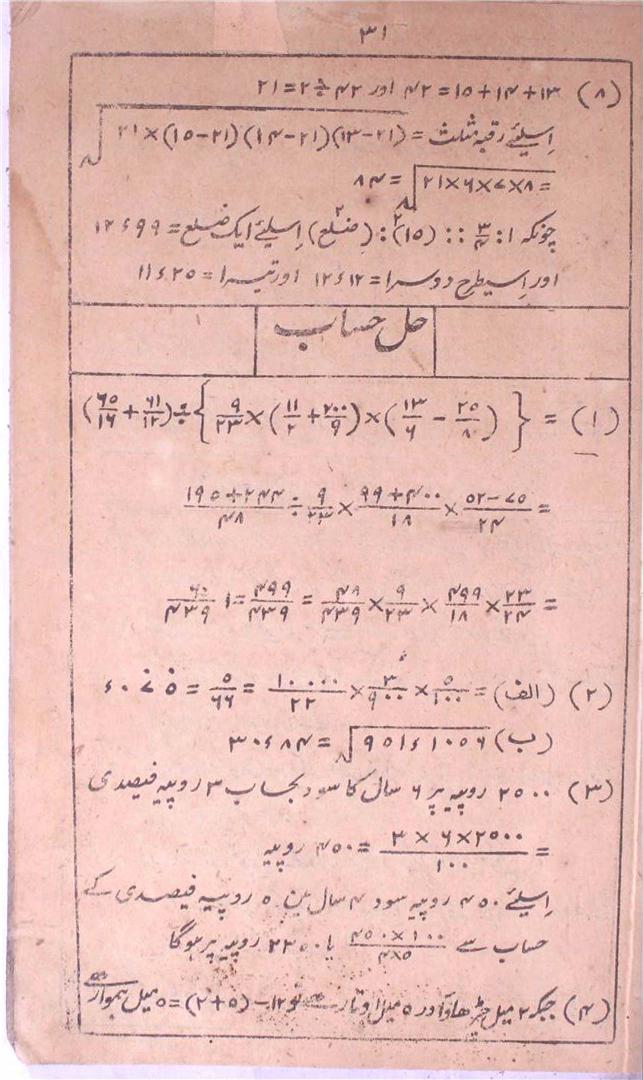 ۳۱
(۸) ۱۳+۱۴+۱۵=۴۲ اور ۴۲÷۲=۲۱
اِسلیئے رقبہ مثلث = √(۲۱−۱۳)(۲۱−۱۴)(۲۱−۱۵)×۲۱
= √۸×۷×۶×۲۱ = ۸۴
چونکہ ۱ : ۳/۴ :: (۱۵)۲ : (ضلع)۲ اِسلیئے ایک ضلع = ۱۲ء۹۹
اور اِسیطرح دوسرا = ۱۲ء۱۲ اور تیسرا = ۱۱ء۲۵
حل حساب
(۱) = {(۲۵/۸ − ۱۳/۶) × (۲۰۰/۹ + ۱۱/۲) × ۹/۲۳} ÷ (۶۱/۱۲ + ۶۵/۱۶)
= ۷۵−۵۲/۲۴ × ۴۰۰+۹۹/۱۸ × ۹/۲۳ ÷ ۲۴۴+۱۹۵/۴۸
= ۲۳/۲۴ × ۴۹۹/۱۸ × ۹/۲۳ × ۴۸/۴۳۹ = ۴۹۹/۴۳۹ = ۱ ۶۰/۴۳۹
(۲) (الف) = ۵/۱۰۰ × ۳/۹۰۰ × ۱۰۰۰۰/۲۲ = ۵/۶۶ = ء۰۷۵
(ب) √۹۵۱ء۱۰۵۶ = ۳۰ء۸۴
(۳) ۲۵۰۰ روپیہ پر ۶ سال کا سود بحساب ۳ روپیہ فیصدی
= ۲۵۰۰×۶×۳/۱۰۰ = ۴۵۰ روپیہ
اِسلیئے ۴۵۰ روپیہ سود ۴ سال مین ۵ روپیہ فیصدی کے
حساب سے ۱۰۰×۴۵۰/۵×۴ یا ۲۲۵۰ روپیہ پر ہوگا
(۴) جبکہ ۲ میل چڑھاؤ اور ۵ میل اوتار ہے تو ۱۲−(۵+۲)=۵ میل ہموار ہے